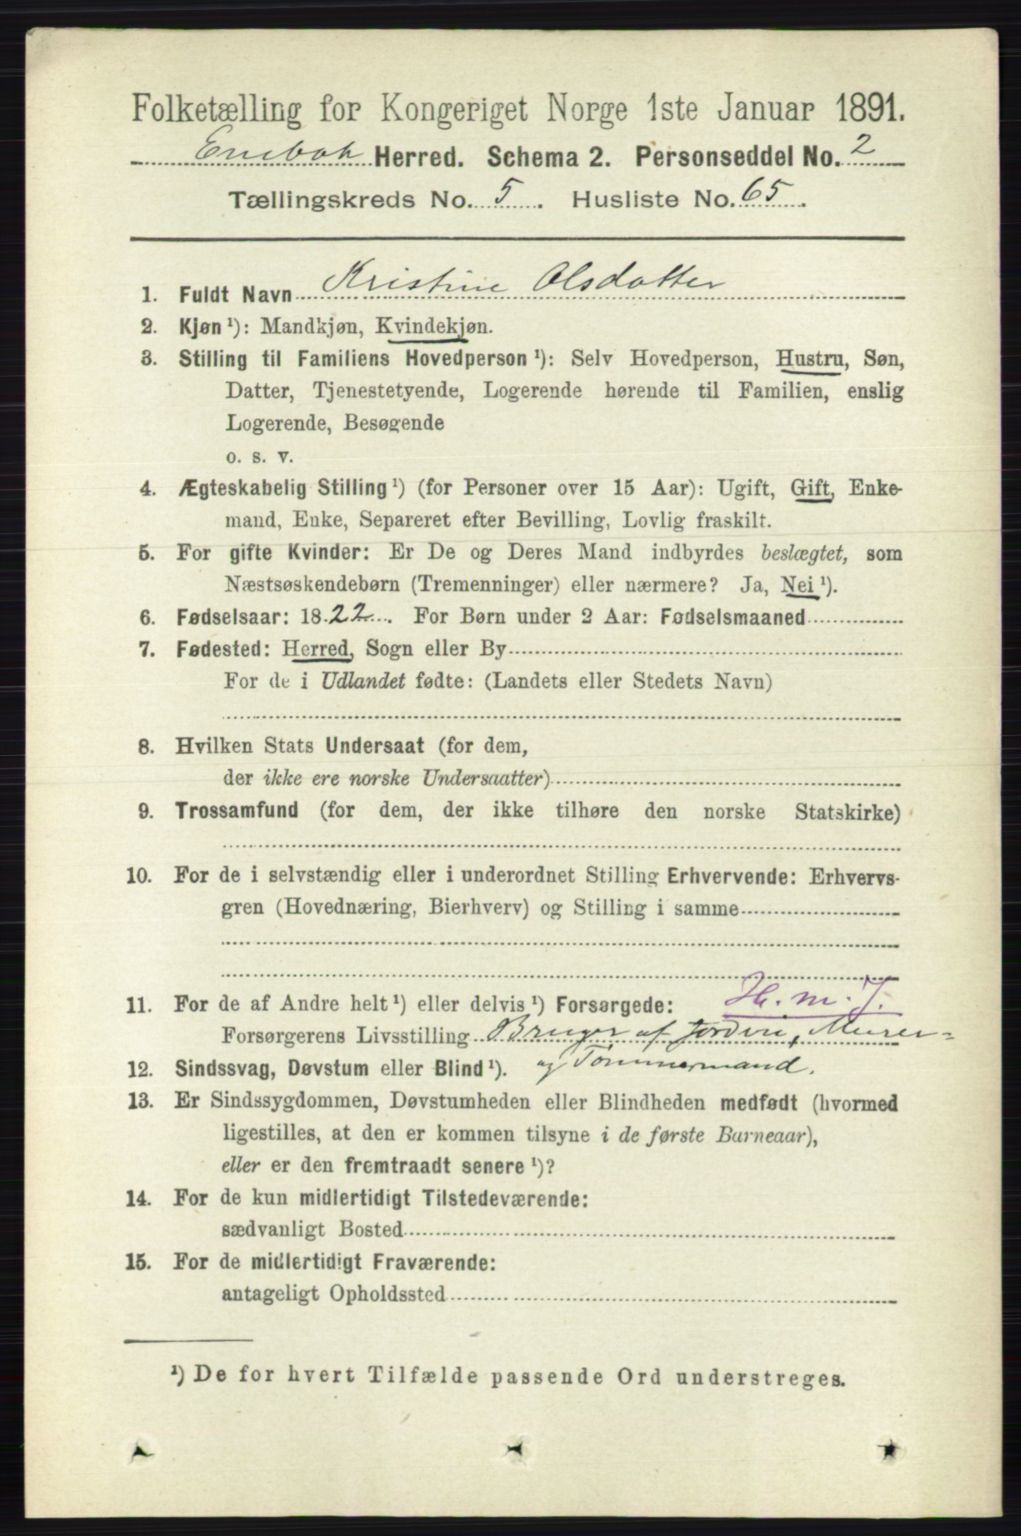 Folketælling for Kongeriget Norge 1ste Januar 1891.
Enebak Herred. Schema 2. Personseddel No. 2
Tællingskreds No. 5. Husliste No. 65.
1. Fuldt Navn Kristine Olsdatter
2. Kjøn ¹): Mandkjøn, Kvindekjøn.
3. Stilling til Familiens Hovedperson ¹): Selv Hovedperson, Hustru, Søn,
Datter, Tjenestetyende, Logerende hørende til Familien, enslig
Logerende, Besøgende
o. s. v.
4. Ægteskabelig Stilling ¹) (for Personer over 15 Aar): Ugift, Gift, Enke-
mand, Enke, Separeret efter Bevilling, Lovlig fraskilt.
5. For gifte Kvinder: Er De og Deres Mand indbyrdes beslægtet, som
Næstsøskendebørn (Tremenninger) eller nærmere? Ja, Nei ¹).
6. Fødselsaar: 1822. For Børn under 2 Aar: Fødselsmaaned
7. Fødested: Herred, Sogn eller By
For de i Udlandet fødte: (Landets eller Stedets Navn)
8. Hvilken Stats Undersaat (for dem,
der ikke ere norske Undersaatter)
9. Trossamfund (for dem, der ikke tilhøre den norske Statskirke)
10. For de i selvstændig eller i underordnet Stilling Erhvervende: Erhvervs-
gren (Hovednæring, Bierhverv) og Stilling i samme
H. m. J.
11. For de af Andre helt ¹) eller delvis ¹) Forsørgede:
Forsørgerens Livsstilling Bruger af Jorden, Murer-
12. Sindssvag, Døvstum eller Blind ¹). og Tømmermand.
13. Er Sindssygdommen, Døvstumheden eller Blindheden medfødt (hvormed
ligestilles, at den er kommen tilsyne i de første Barneaar),
eller er den fremtraadt senere ¹)?
14. For de kun midlertidigt Tilstedeværende:
sædvanligt Bosted
15. For de midlertidigt Fraværende:
antageligt Opholdssted
¹) De for hvert Tilfælde passende Ord understreges.